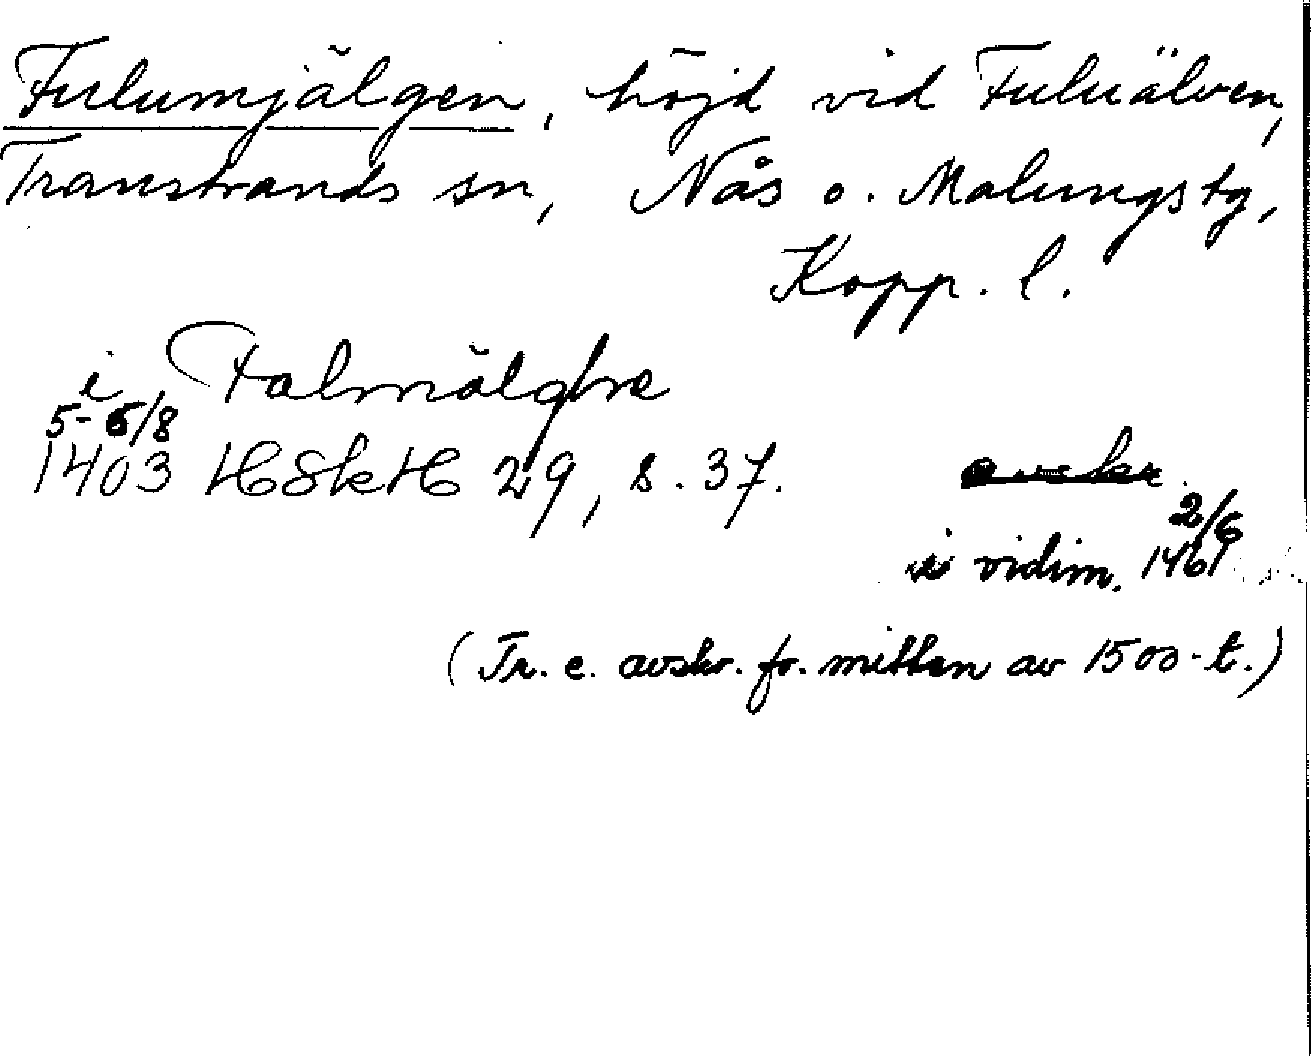 Fulumjälgen, höjd vid Fuluälven,
Transtrands sn, Nås o. Malungs tg,
Kopp. l.
i Falmälghe
5-6/8
1403 HSkH 29, s. 37.
avskr.
2/6
i vidim. 1461
(Tr. e. avskr. fr. mitten av 1500-t.)